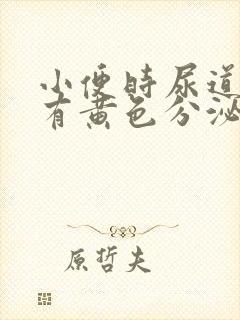 小便时尿道
有黄色分泌
原哲夫